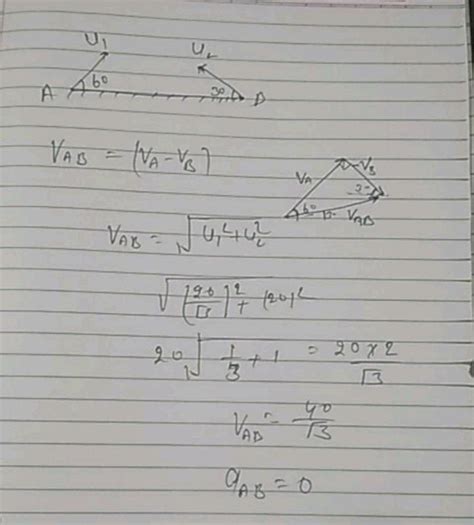 U₁ U₂
A 60 30 B
V_AB = (V_A - V_B)
V_A -V_B
60 V_AB
V_AB = √(U₁² + U₂²)
√((20/√3)² + (20)²
20√(1/3 + 1) = 20×2/√3
V_AB = 40/√3
a_AB = 0